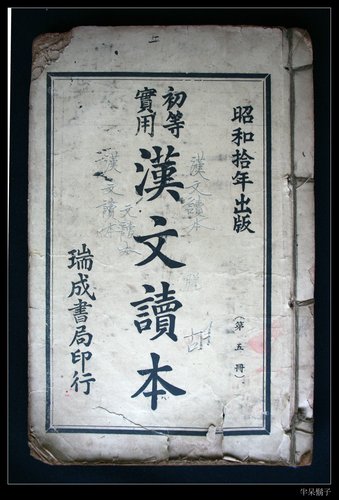 昭和拾年出版
（第五冊）
初等
實用
漢文讀本
瑞成書局印行
漢文讀本
文讀本
漢文讀本
半呆鬍子